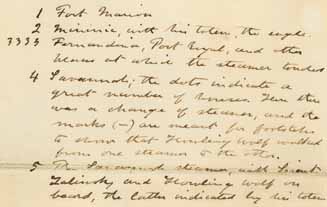 1 Fort Marion
2 Minimic, with his totem, the eagle.
3333 Fernandina, Port Royal, and other
places at which the steamer touched
4 Savannah; the dots indicate a
great number of houses. Here there
was a change of steamer, and the
marks (–) are meant for footsteps
to show that Howling Wolf walked
from one steamer to the other.
5 The Savannah steamer, with Lieut
Zalinsky and Howling Wolf on
board, the latter indicated by his totem